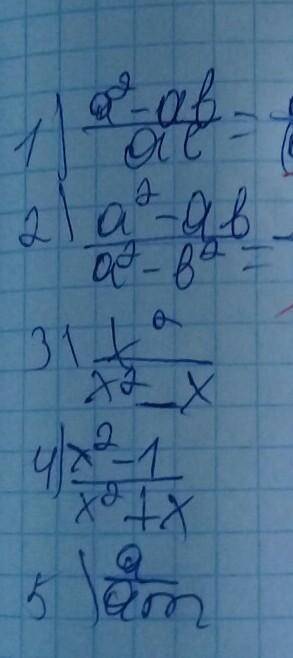 1) a² - ab / ac =
2) a² - ab / a² - b² =
3) x² / x² - x
4) x² - 1 / x² + x
5) a / am